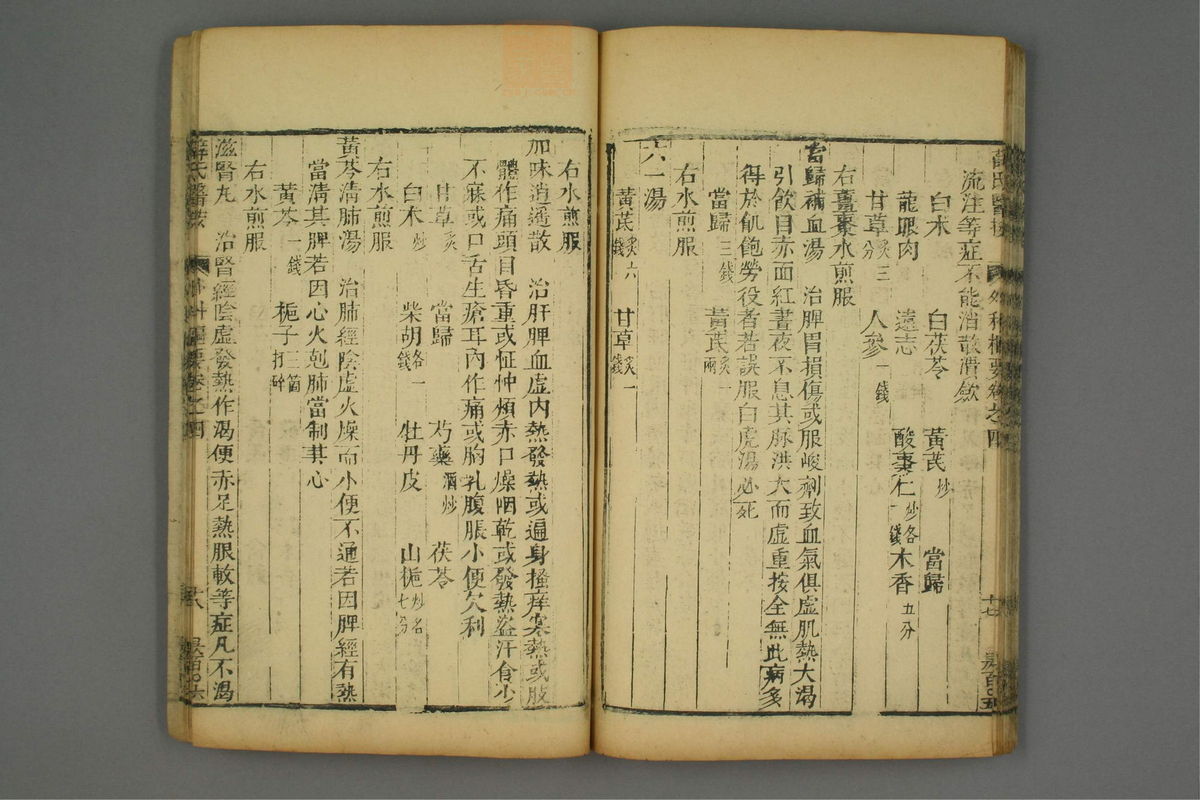 流注等症不能消散潰斂
白朮 白茯苓 黃芪炒 當歸
龍眼肉 遠志 酸棗仁炒各一錢 木香五分
甘草炙三分 人參一錢
右薑棗水煎服
當歸補血湯 治脾胃損傷或服峻劑致血氣俱虛肌熱大渴
引飲目赤面紅晝夜不息其脉洪大而虛重按全無此病多
得於飢飽勞役者若誤服白虎湯必死
當歸三錢 黃芪炙一兩
右水煎服
六一湯
黃芪炙六錢 甘草炙一錢
右水煎服
加味逍遙散 治肝脾血虛內熱發熱或遍身搔痒寒熱或肢
體作痛頭目昏重或怔忡煩赤口燥咽乾或發熱盜汗食少
不寐或口舌生瘡耳內作痛或胸乳腹脹小便欠利
甘草炙 當歸 芍藥酒炒 茯苓
白朮炒 柴胡各一錢 牡丹皮 山梔炒各七分
右水煎服
黃芩淸肺湯 治肺經陰虛火燥而小便不通若因脾經有熱
當淸其脾若因心火剋肺當制其心
黃芩一錢 梔子三箇打碎
右水煎服
滋腎丸 治腎經陰虛發熱作渴便赤足熱服軟等症凡不渴
薛氏醫按